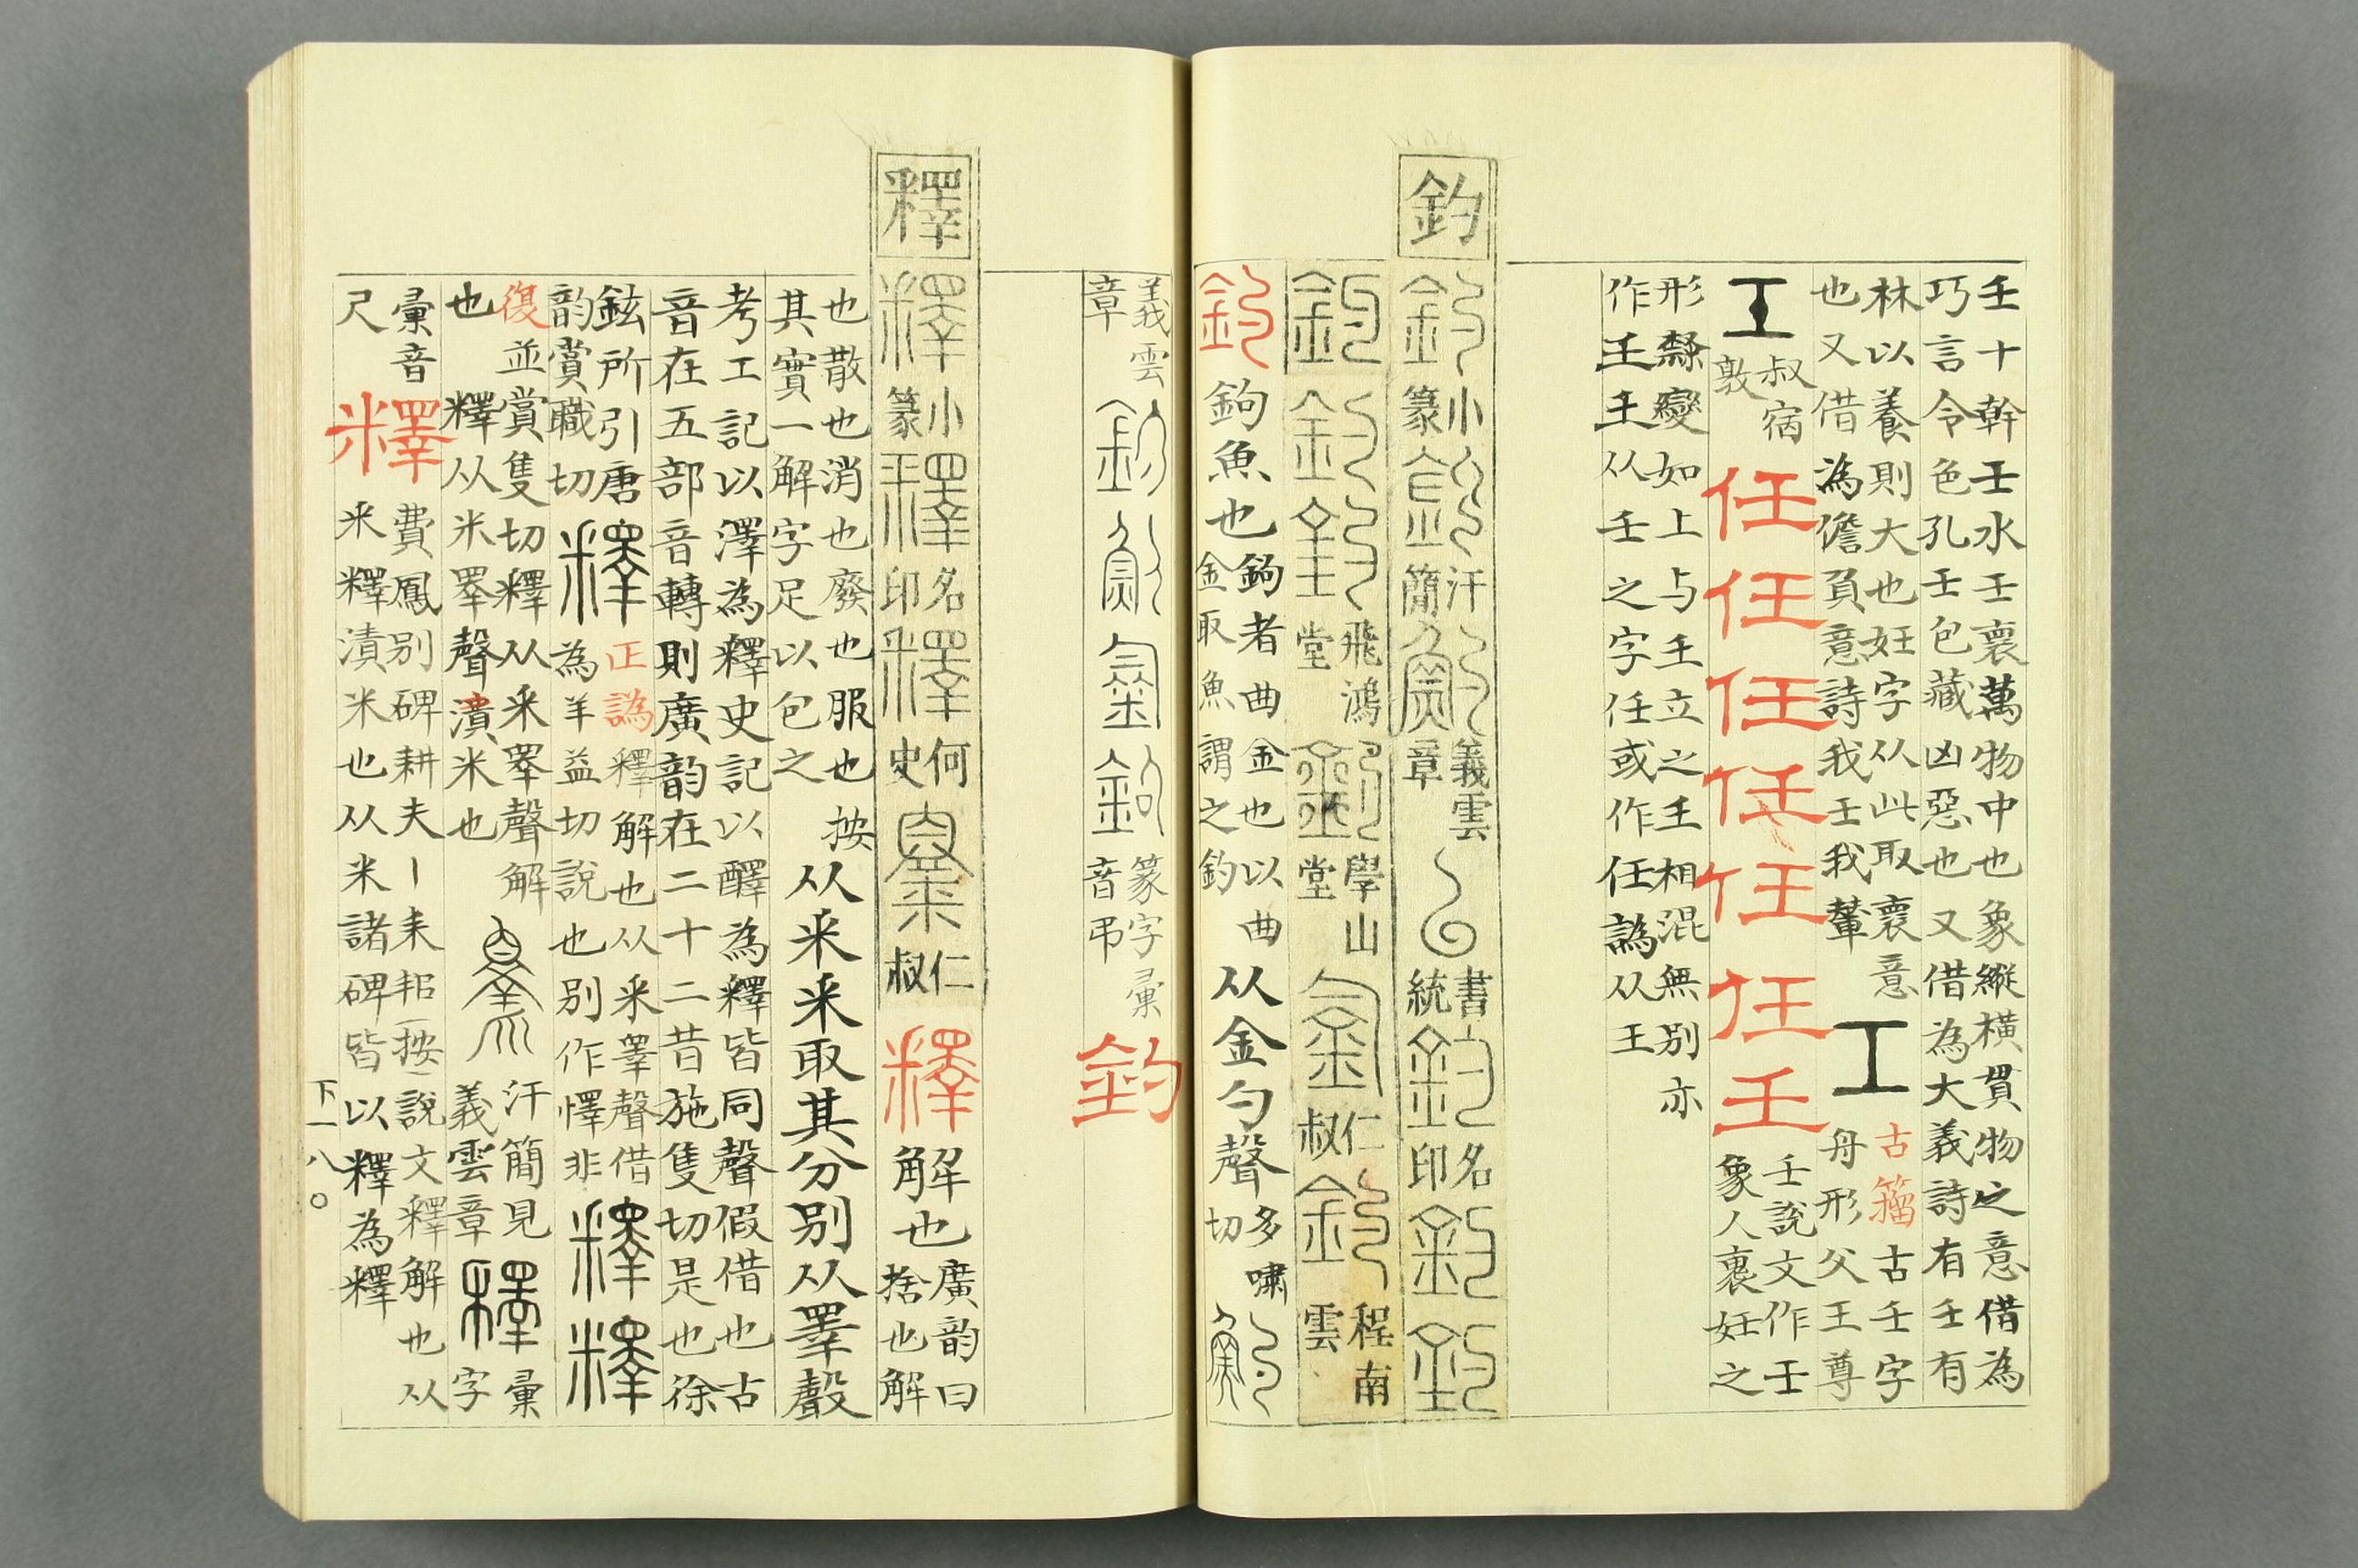 壬十幹壬水壬裹萬物中也象縱橫貫物之意借為
巧言令色孔壬包藏凶惡也又借為大義詩有壬有
林以養則大也妊字从此取裹意
也又借為儋負意詩我壬我輦
古籀古壬字
舟形父王尊
叔宿
敦
任任任任任任壬
壬說文作壬
象人裹妊之
形隸變如上与𡈼立之𡈼相混無別亦
作王𡈼从壬之字任或作任譌从王
釣
釣小篆
汗簡
義雲章
書統
名印
飛鴻堂
學山堂
仁叔
程南雲
釣鉤魚也
鉤者曲金也以曲
金取魚謂之釣
从金勺聲
多嘯
切
義雲
章
篆字彙
音弔
釣
釋
釋小篆
釋名印
釋何史
仁叔
釋解也
廣韵曰
捨也解
也散也消也廢也服也按
其實一解字足以包之
从釆釆取其分别从睪聲
考工記以澤為釋史記以醳為釋皆同聲假借也古
音在五部音轉則廣韵在二十二昔施隻切是也徐
鉉所引唐
韵賞職切
釋
正譌釋解也从釆睪聲借
為羊益切説也别作懌非
釋釋
復並賞隻切釋从釆睪聲解
也釋从米睪聲漬米也
汗簡見
義雲章
釋
字
彙
彙音
尺
釋
費鳳别碑耕夫丨耒耜按說文釋解也从
釆釋漬米也从米諸碑皆以釋為釋
下一八〇